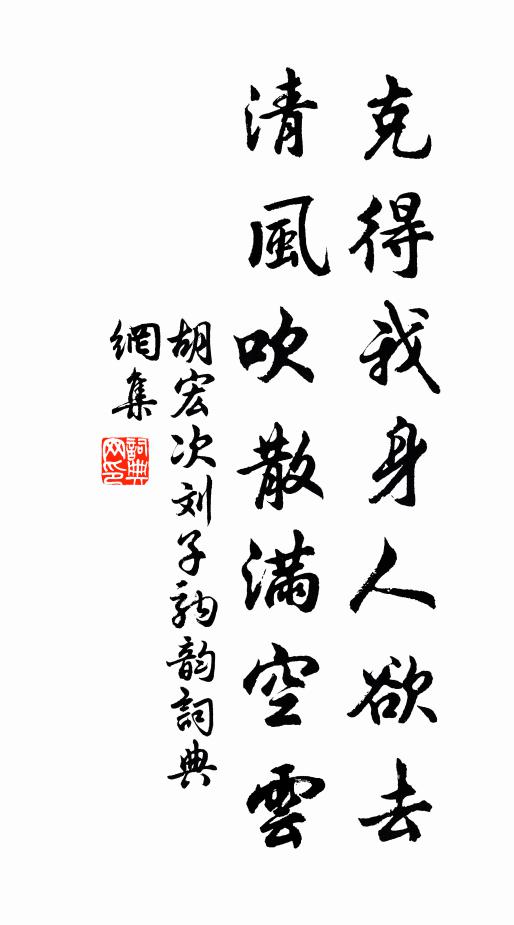 克得我身人欲去
清風吹散滿空雲
胡宏次刘子驹韵詞典
網集
詞典网印